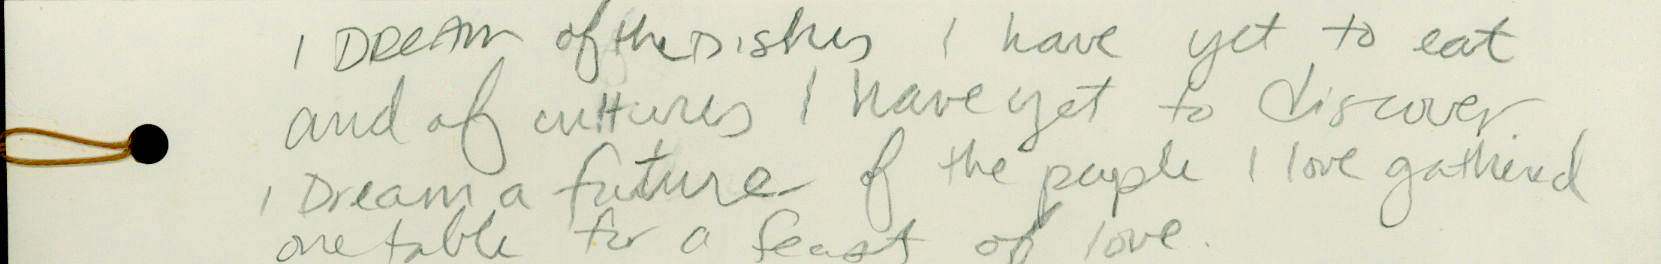 I DREAM of the Dishes I have yet to eat
and of cultures I have yet to discover.
I Dream a future of the people I love gathered
one table for a feast of love.